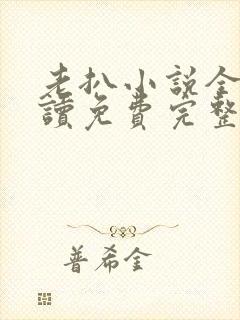 老扒小说全
讀免費完整
普希金